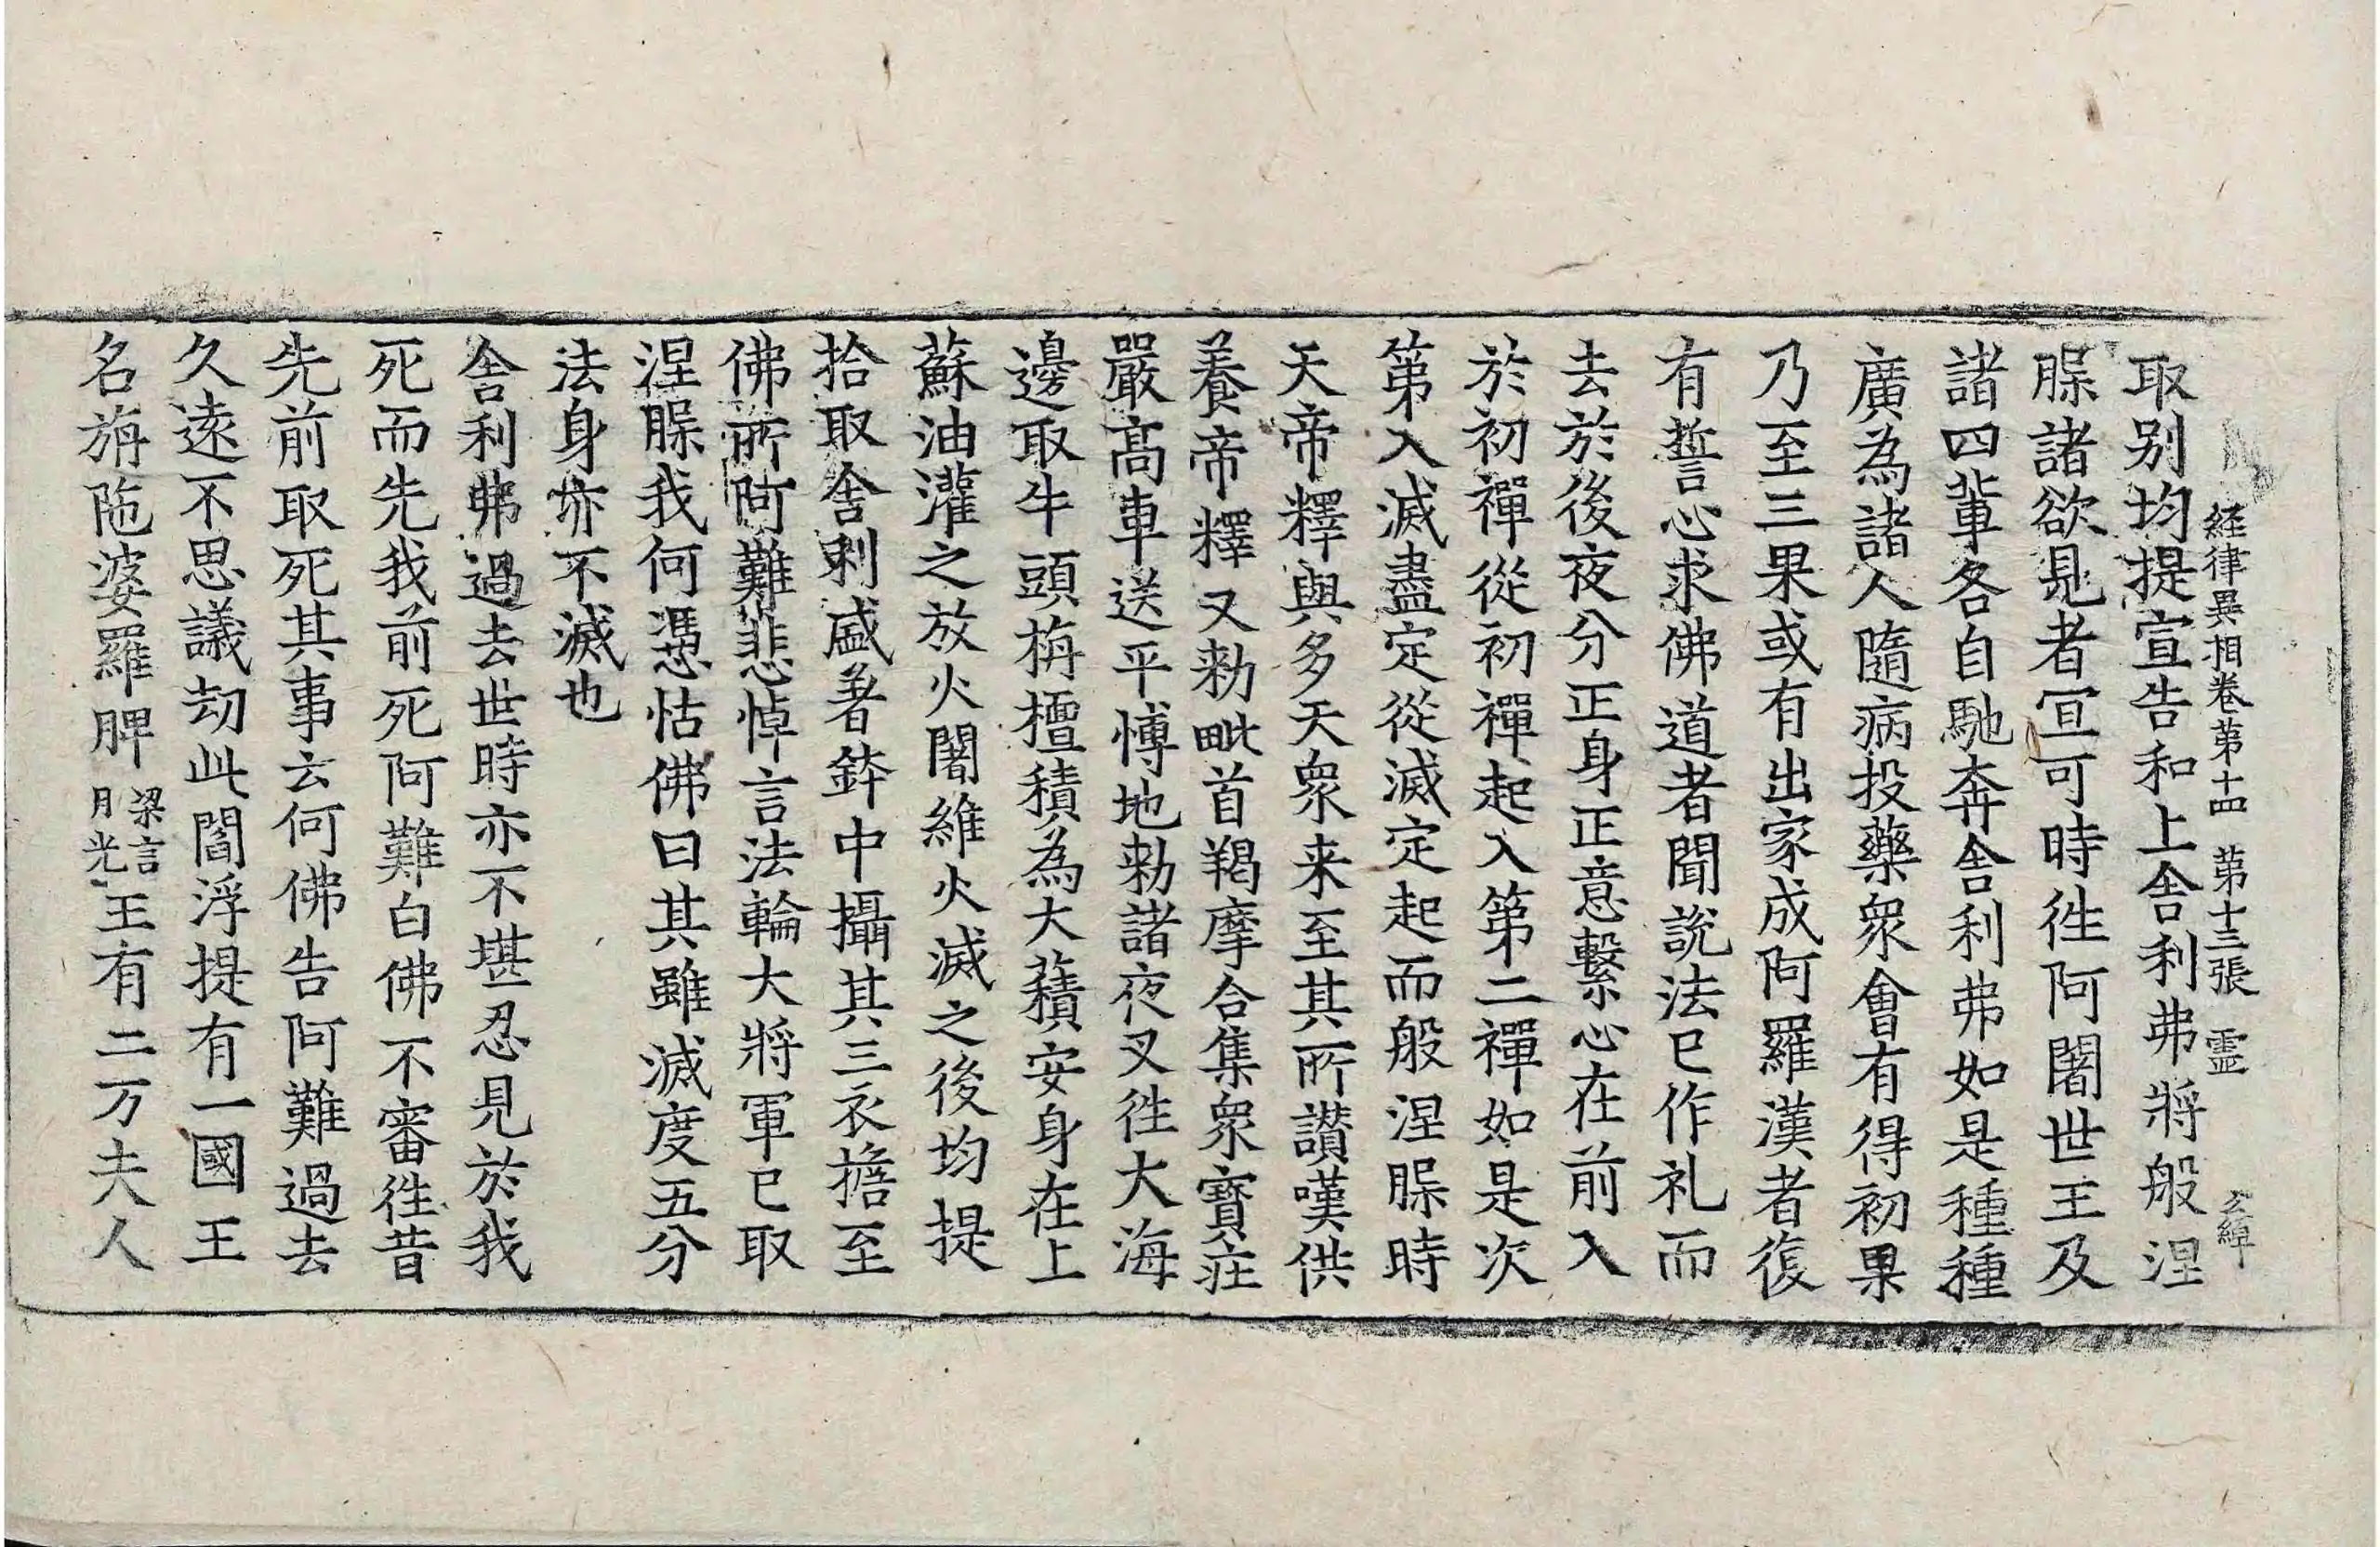 経律異相卷第十四 第十三張 霊
取别均提宣告和上舎利弗將般涅
𦚾諸欲見者冝可時徃阿闍世王及
諸四軰各自馳奔舎利弗如是種種
廣為諸人隨病投藥衆會有得初果
乃至三果或有出家成阿羅漢者復
有誓心求佛道者聞說法已作礼而
去於後夜分正身正意繫心在前入
於初禪從初禪起入第二禪如是次
第入滅盡定從滅定起而般涅𦚾時
天帝釋與多天衆来至其所讃嘆供
養帝釋又勑毗首羯摩合集衆寶荘
嚴髙車送平慱地勑諸夜叉徃大海
邊取牛頭栴檀積為大𧂐安身在上
蘇油灌之放火闍維火滅之後均提
拾取舎利盛著鉢中攝其三衣擔至
佛所阿難悲悼言法輪大將軍已取
涅𦚾我何憑怙佛曰其雖滅度五分
法身亦不滅也
舎利弗過去世時亦不堪忍見於我
死而先我前死阿難白佛不審徃昔
先前取死其事云何佛告阿難過去
久遠不思議劫此閻浮提有一國王
名旃陁婆羅脾梁言月光王有二万夫人